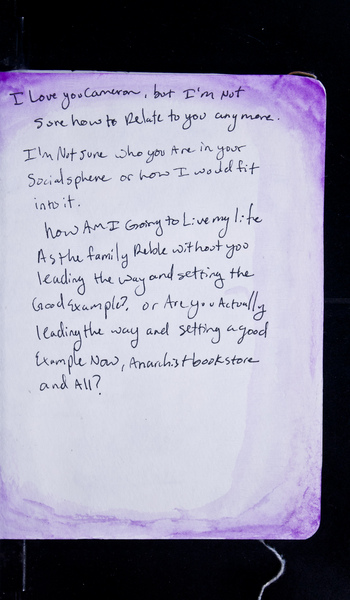 I Love you Cameron, but I'm Not
sure how to Relate to you any more.
I'm Not sure who you Are in your
Social sphere or how I would fit
into it.
how Am I Going to Live my life
As the family Reble without you
leading the way and setting the
Good Example? or Are you Actually
leading the way and setting a good
Example Now, Anarchist bookstore
and All?